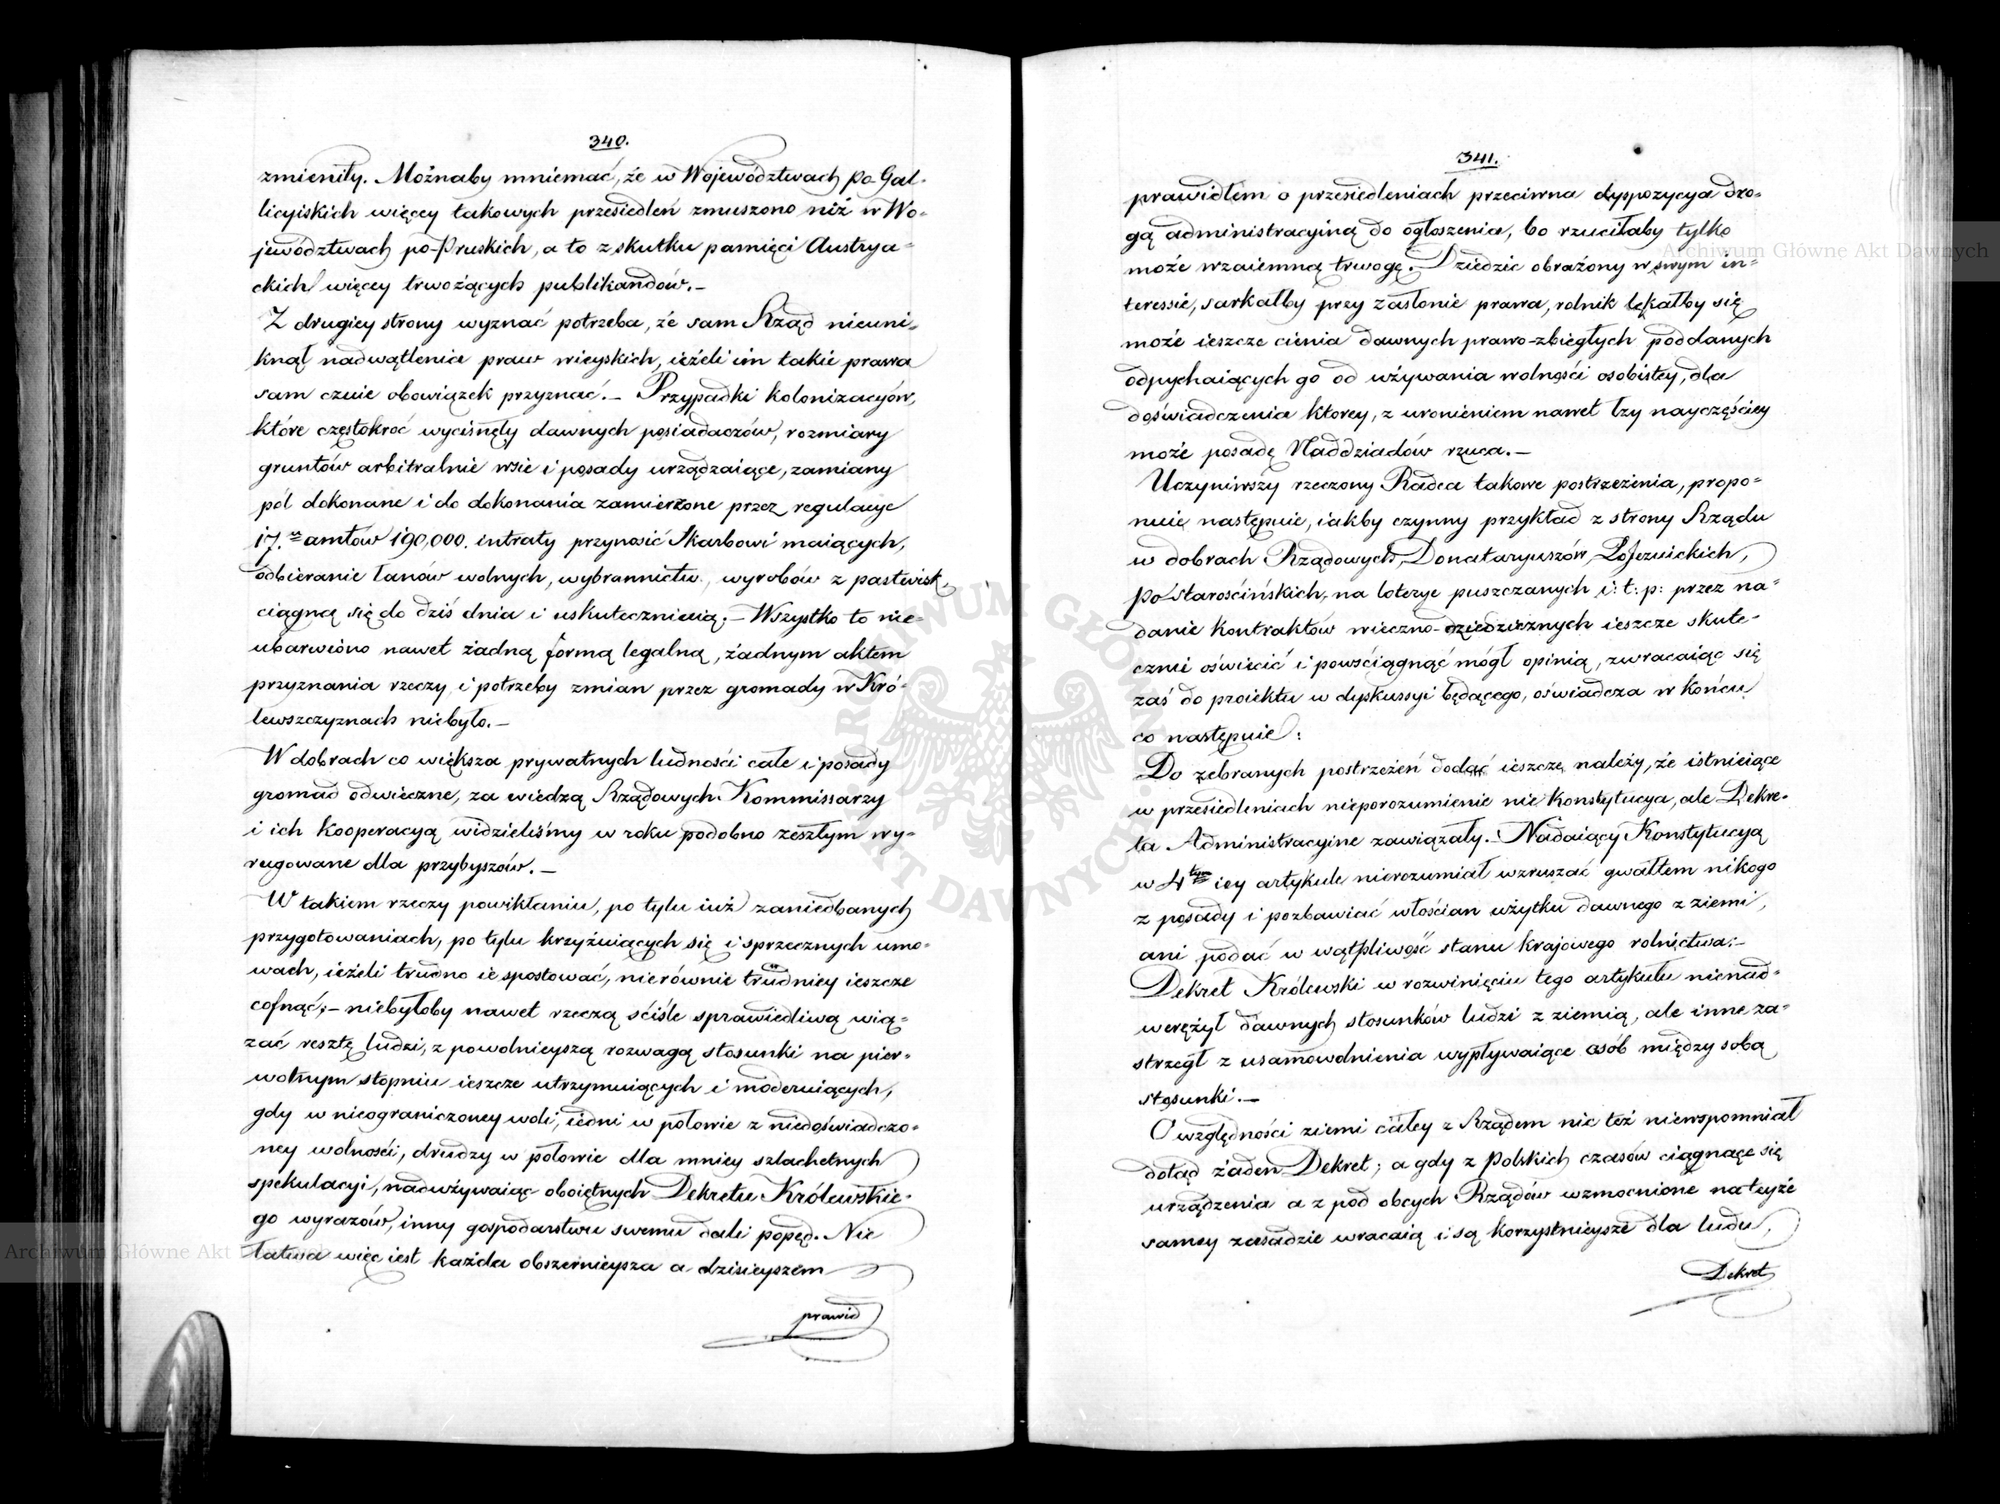 340.
zmieniły. Możnaby mniemać, że w Województwach po Gal-
licyiskich więcey takowych przesiedleń zmuszono niż w Wo-
jewództwach po-Pruskich, a to z skutku pamięci Austrya-
ckich więcey trwożących publikandów.-
Z drugiey strony wyznać potrzeba, że sam Rząd nieuni-
knął nadwątlenia praw wieyskich, ieżeli im takie prawa
sam czuie obowiązek przyznać.- Przypadki kolonizacyów,
które częstokroć wycisnęły dawnych posiadaczów, rozmiary
gruntów arbitralnie wsie i posady urządzaiące, zamiany
pól dokonane i do dokonania zamierzone przez regulacye
17.stu amtów 190,000. intraty przynosić Skarbowi maiących,
odbieranie łanów wolnych, wybrannictw, wyrobów z pastwisk,
ciągną się do dziś dnia i uskuteczniaią.- Wszystko to nie-
ubarwióno nawet żadną formą legalną, żadnym aktem
przyznania rzeczy i potrzeby zmian przez gromady w Kró-
lewszczyznach niebyło.-
W dobrach co większa prywatnych ludności całe i posady
gromad odwieczne, za wiedzą Rządowych Kommissarzy
i ich kooperacyą widzieliśmy w roku podobno zeszłym wy-
rugowane dla przybyszów.-
W takiem rzeczy powikłaniu, po tylu iuż zaniedbanych
przygotowaniach, po tylu krzyżuiących się i sprzecznych umo-
wach, ieżeli trudno ie spostować, nierównie trudniey ieszcze
cofnąć;- niebyłoby nawet rzeczą ściśle sprawiedliwą wią-
zać resztę ludzi, z powolnieyszą rozwagą stosunki na pier-
wotnym stopniu ieszcze utrzymuiących i moderuiących,
gdy w nieograniczoney woli, iedni w połowie z niedoświadczo-
ney wolności, drudzy w połowie dla mniey szlachetnych
spekulacyi, nadużywaiąc oboiętnych Dekretu Królewskie-
go wyrazów, inny gospodarstwu swemu dali popęd. Nie
łatwa więc iest każda obszernieysza a dzisieyszem
prawid
341.
prawidłem o przesiedleniach przeciwna dyspozycya dro-
gą administracyiną do ogłoszenia, bo rzuciłaby tylko
może wzaiemną trwogę.- Dziedzic obrażony w swym in-
teressie, sarkałby przy zasłonie prawa, rolnik lękałby się
może ieszcze cienia dawnych prawo-zbiegłych poddanych
odpychaiących go od używania wolności osobistey, dla
doświadczenia ktorey, z uronieniem nawet łzy nayczęściey
może posadę Naddziadów rzuca.-
Uczyniwszy rzeczony Radca takowe postrzeżenia, propo-
nuie następuie, iakby czynny przykład z strony Rządu
w dobrach Rządowych, Donataryuszów, Pojezuickich,
po Starościńskich, na loterye puszczanych i: t: p: przez na-
danie kontraktów wieczno-dziedzicznych ieszcze skute-
cznie oświecić i powściągnąć mógł opinią, zwracaiąc się
zaś do proiektu w dyskussyi będącego, oświadcza w końcu
co następuie:
Do zebranych postrzeżeń dodać ieszcze należy, że istnieiące
w przesiedleniach nieporozumienie nie Konstytucya, ale Dekre-
ta Administracyine zawiązały.- Nadaiący Konstytucyą
w 4tym iey artykule nierozumiał wzruszać gwałtem nikogo
z posady i pozbawiać włościan użytku dawnego z ziemi,
ani podać w wątpliwość stanu krajowego rolnictwa;-
Dekret Królewski w rozwinięciu tego artykułu nienad-
werężył dawnych stosunków ludzi z ziemią, ale inne za-
strzegł z usamowolnienia wypływaiące osób między sobą
stosunki.-
O względności ziemi całey z Rządem nic też niewspomniał
dotąd żaden Dekret; a gdy z Polskich czasów ciągnące się
urządzenia a z pod obcych Rządów wzmocnione na teyże
samey zasadzie wracaią i są korzystnieysze dla ludu,
Dekret
Archiwum Główne Akt Dawnych
Archiwum Główne Akt Dawnych
ARCHIWUM GŁÓWNE AKT DAWNYCH